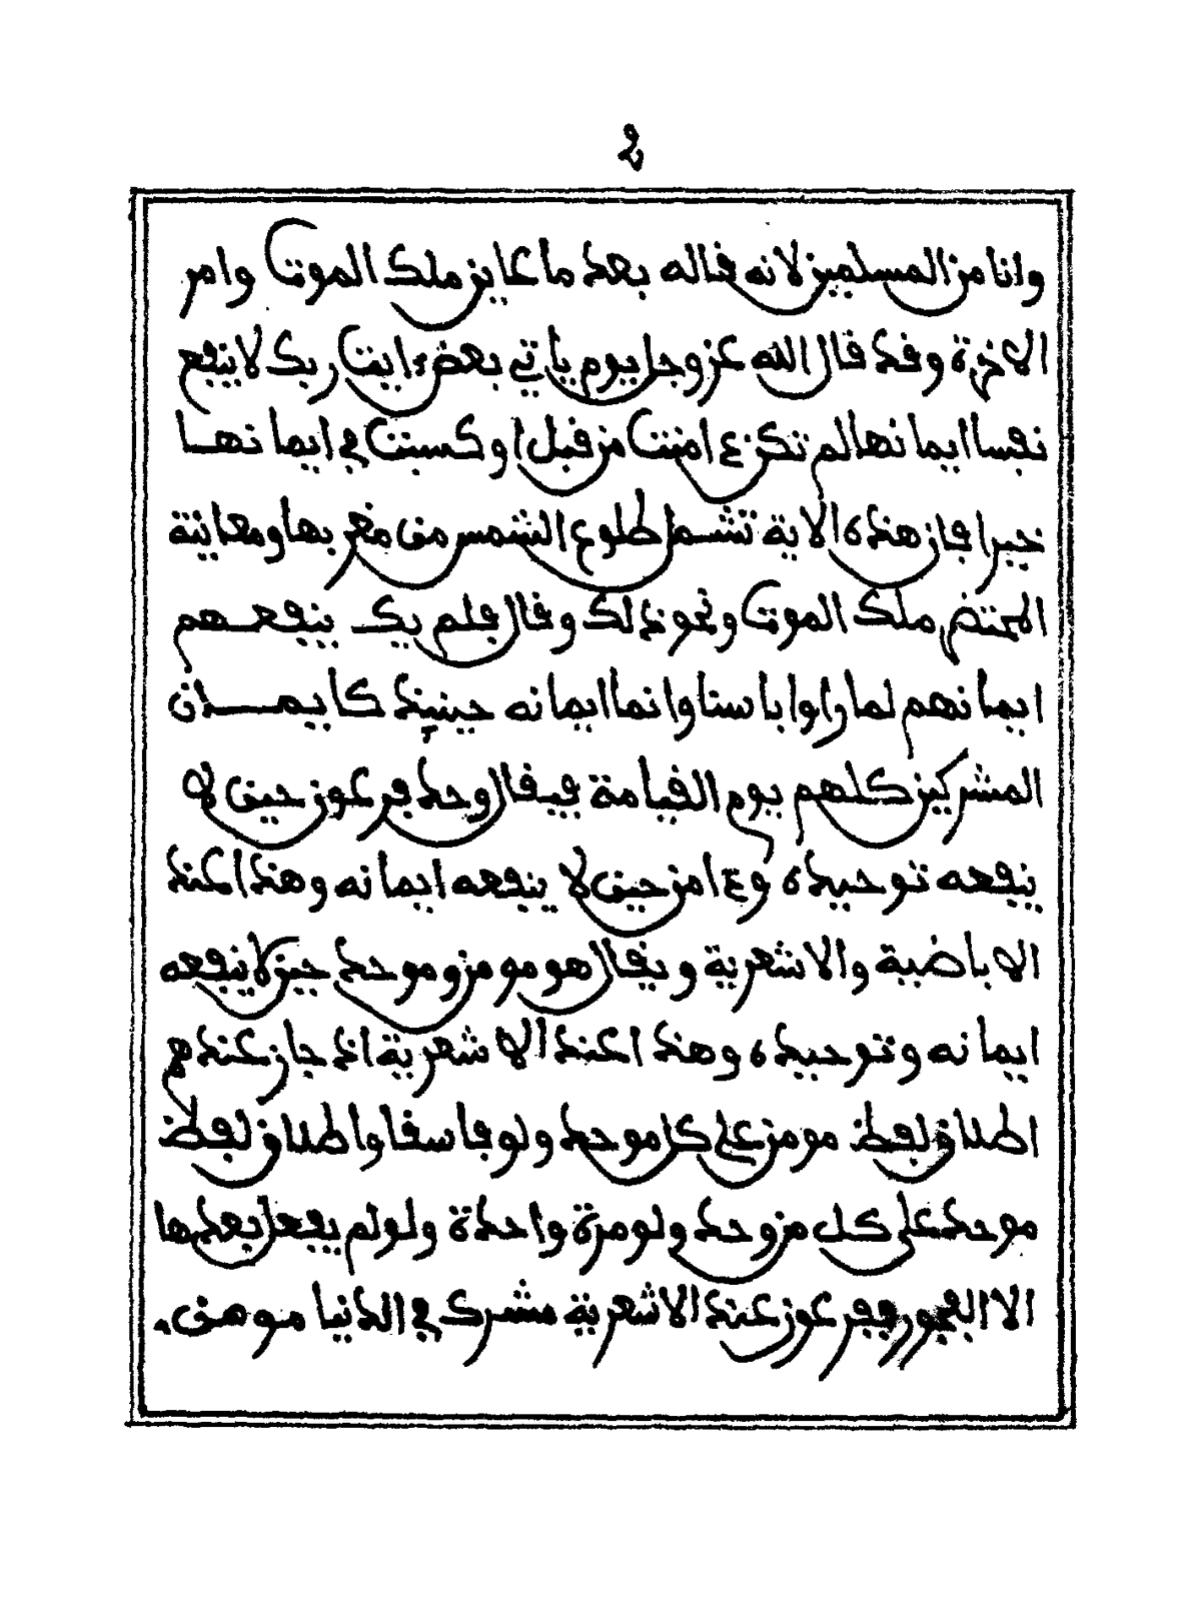 2
وانا من المسلمين لانه قاله بعد ما عاين ملك الموت وامر
الاخرة وقد قال الله عز وجل يوم ياتي بعض ءايت ربك لا ينفع
نفسا ايمانها لم تكن ءامنت من قبل او كسبت في ايمانها
خيرا فان هذه الاية تشمل طلوع الشمس من مغربها ومعاينة
المحتضر ملك الموت ونحو ذلك وقال فلم يك ينفعهم
ايمانهم لما راوا باسنا وانما ايمانه حينئذ كايمان
المشركين كلهم يوم القيامة فيقال وحد فرعون حين لا
ينفعه توحيده وءامن حين لا ينفعه ايمانه وهذا عند
الاباضية والاشعرية ويقال هو مومن وموحد حين لا ينفعه
ايمانه وتوحيده وهذا عند الاشعرية اذ جاز عندهم
اطلاق لفظ مومن على كل موحد ولو فاسقا واطلاق لفظ
موحد على كل من وحد ولو مرة واحدة ولو لم يفعل بعدها
الا الفجور ففرعون عند الاشعرية مشرك في الدنيا مومن